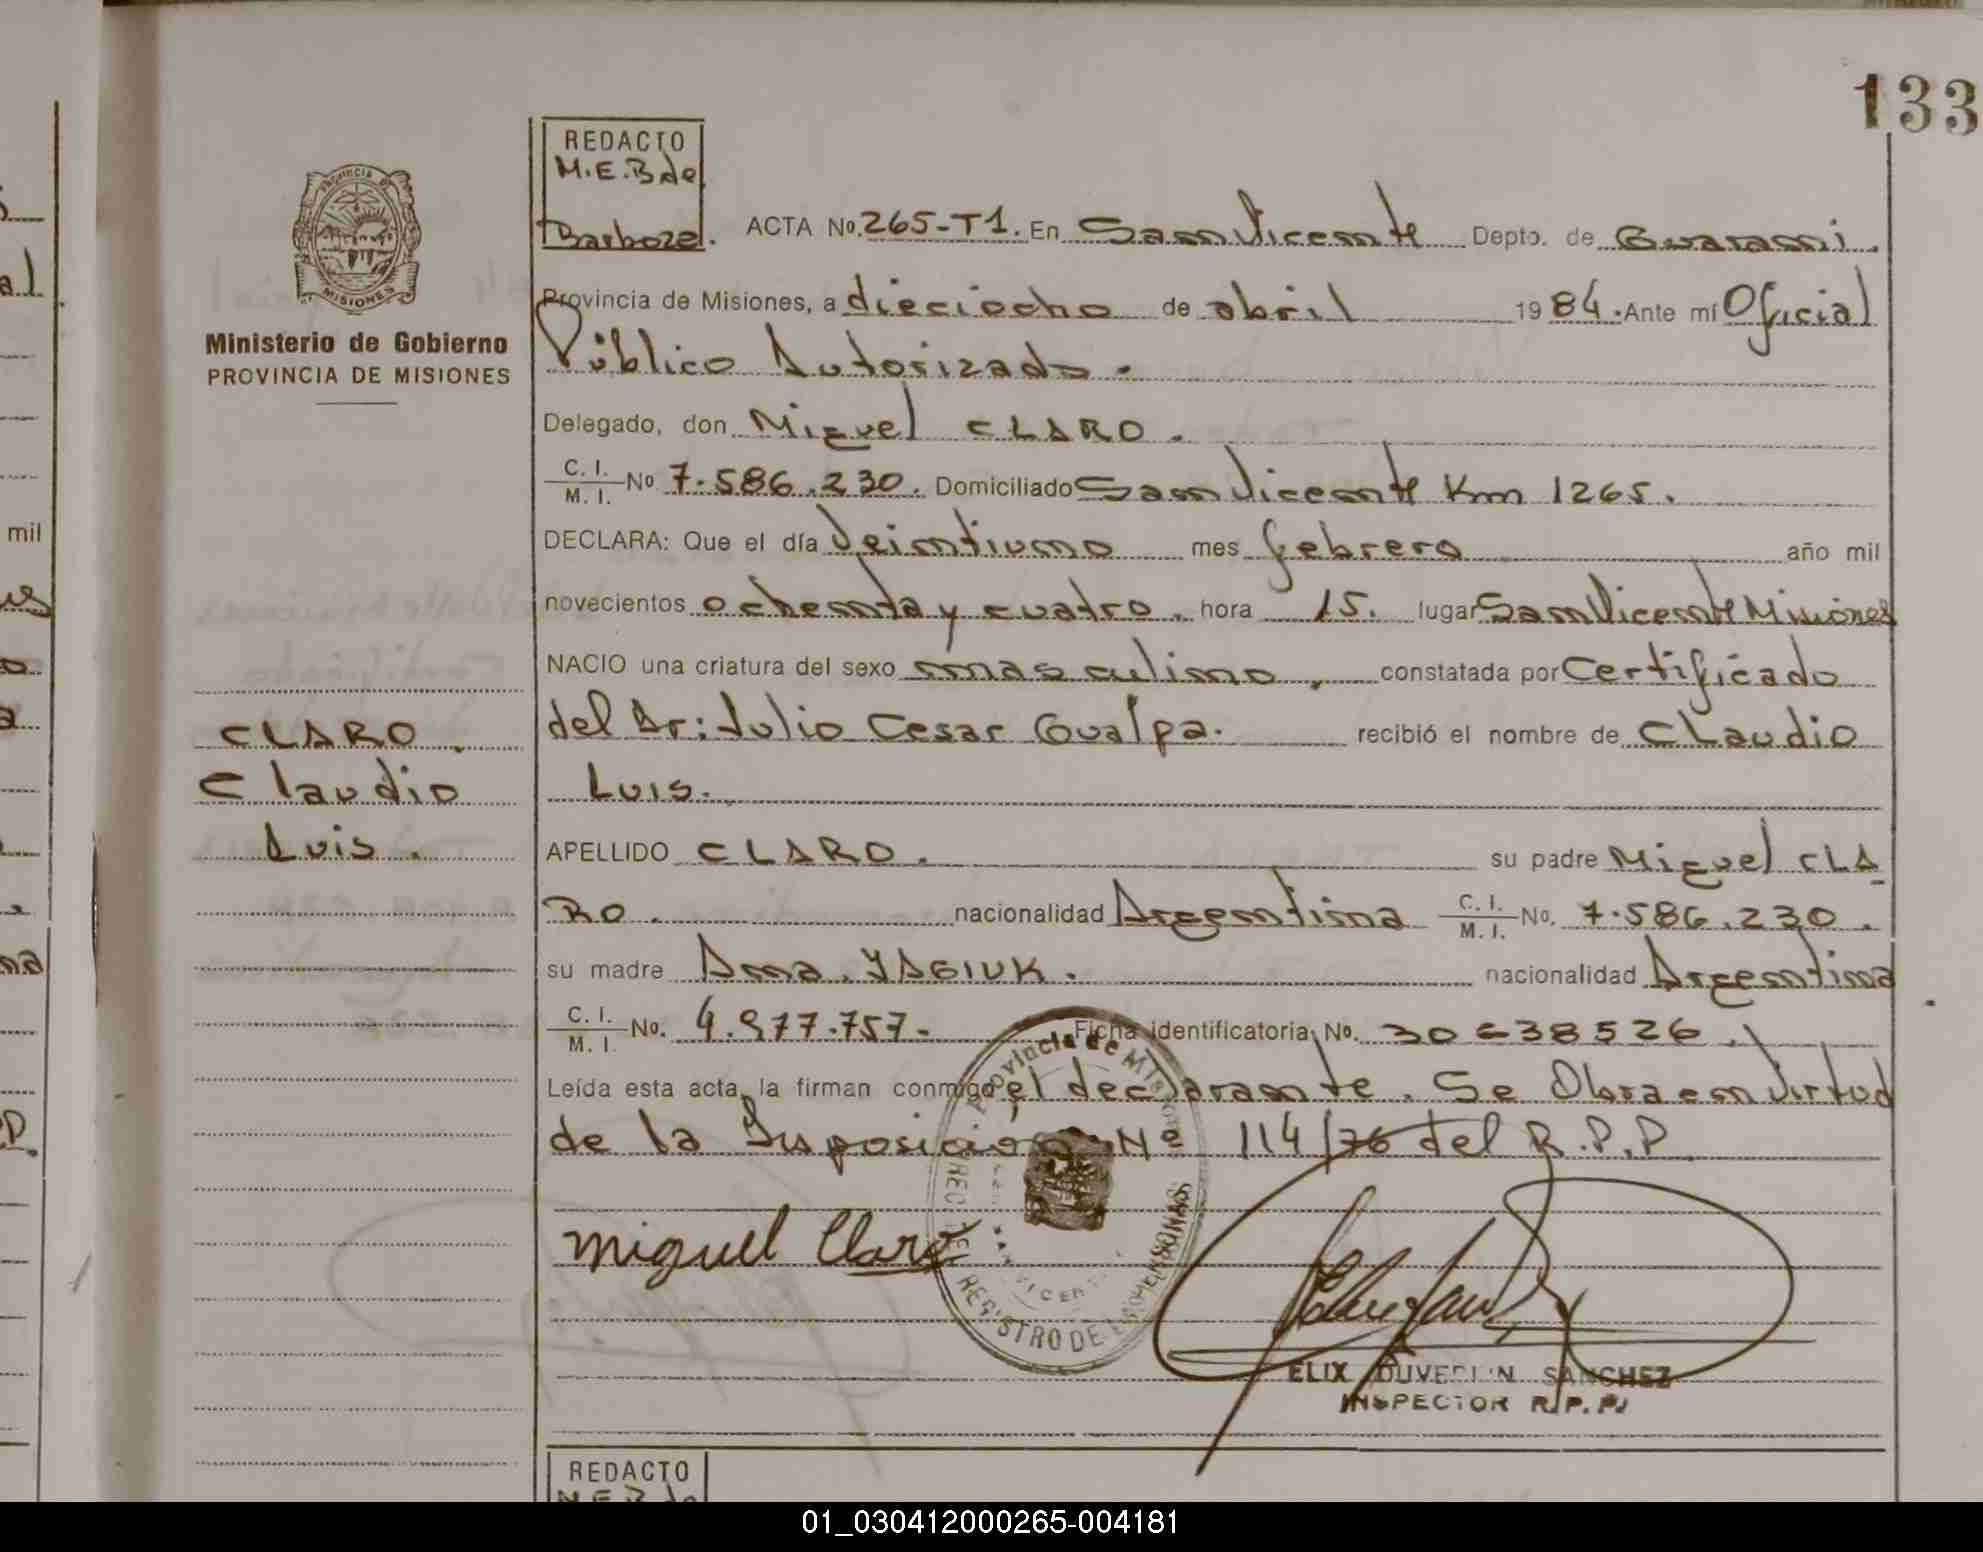 133
REDACTO
M.E.B de
Barboza.
ACTA No. 265-T1. En San Vicente Depto. de Guarani.
Provincia de Misiones, a dieciocho de abril 1984. Ante mí Oficial
Público Autorizado.
Delegado, don Miguel CLARO.
C. I. / M. I. No 7.586.230. Domiciliado San Vicente Km 1265.
DECLARA: Que el día Veintiuno mes febrero año mil
novecientos ochenta y cuatro. hora 15. lugar San Vicente Misiones
NACIO una criatura del sexo masculino, constatada por Certificado
del Dr: Julio Cesar Gualpa. recibió el nombre de Claudio
Luis.
APELLIDO CLARO. su padre Miguel CLA
RO. nacionalidad Argentina C. I. / M. I. No. 7.586.230.
su madre Ana YAGIUK. nacionalidad Argentina
C. I. / M. I. No. 4.977.757- Ficha identificatoria No. 30638526.
Leída esta acta, la firman conmigo el declarante. Se Obra en Virtud
de la Disposición Nº 114/76 del R.P.P
Miguel Claro
ELIX DUVERLIN SANCHEZ
INSPECTOR R.P.P.
Provincia de Misiones
SAN VICENTE
REGISTRO DE
PROVINCIA DE
MISIONES
Ministerio de Gobierno
PROVINCIA DE MISIONES
CLARO.
Claudio
Luis.
mil
REDACTO
M.E.B de
01_030412000265-004181